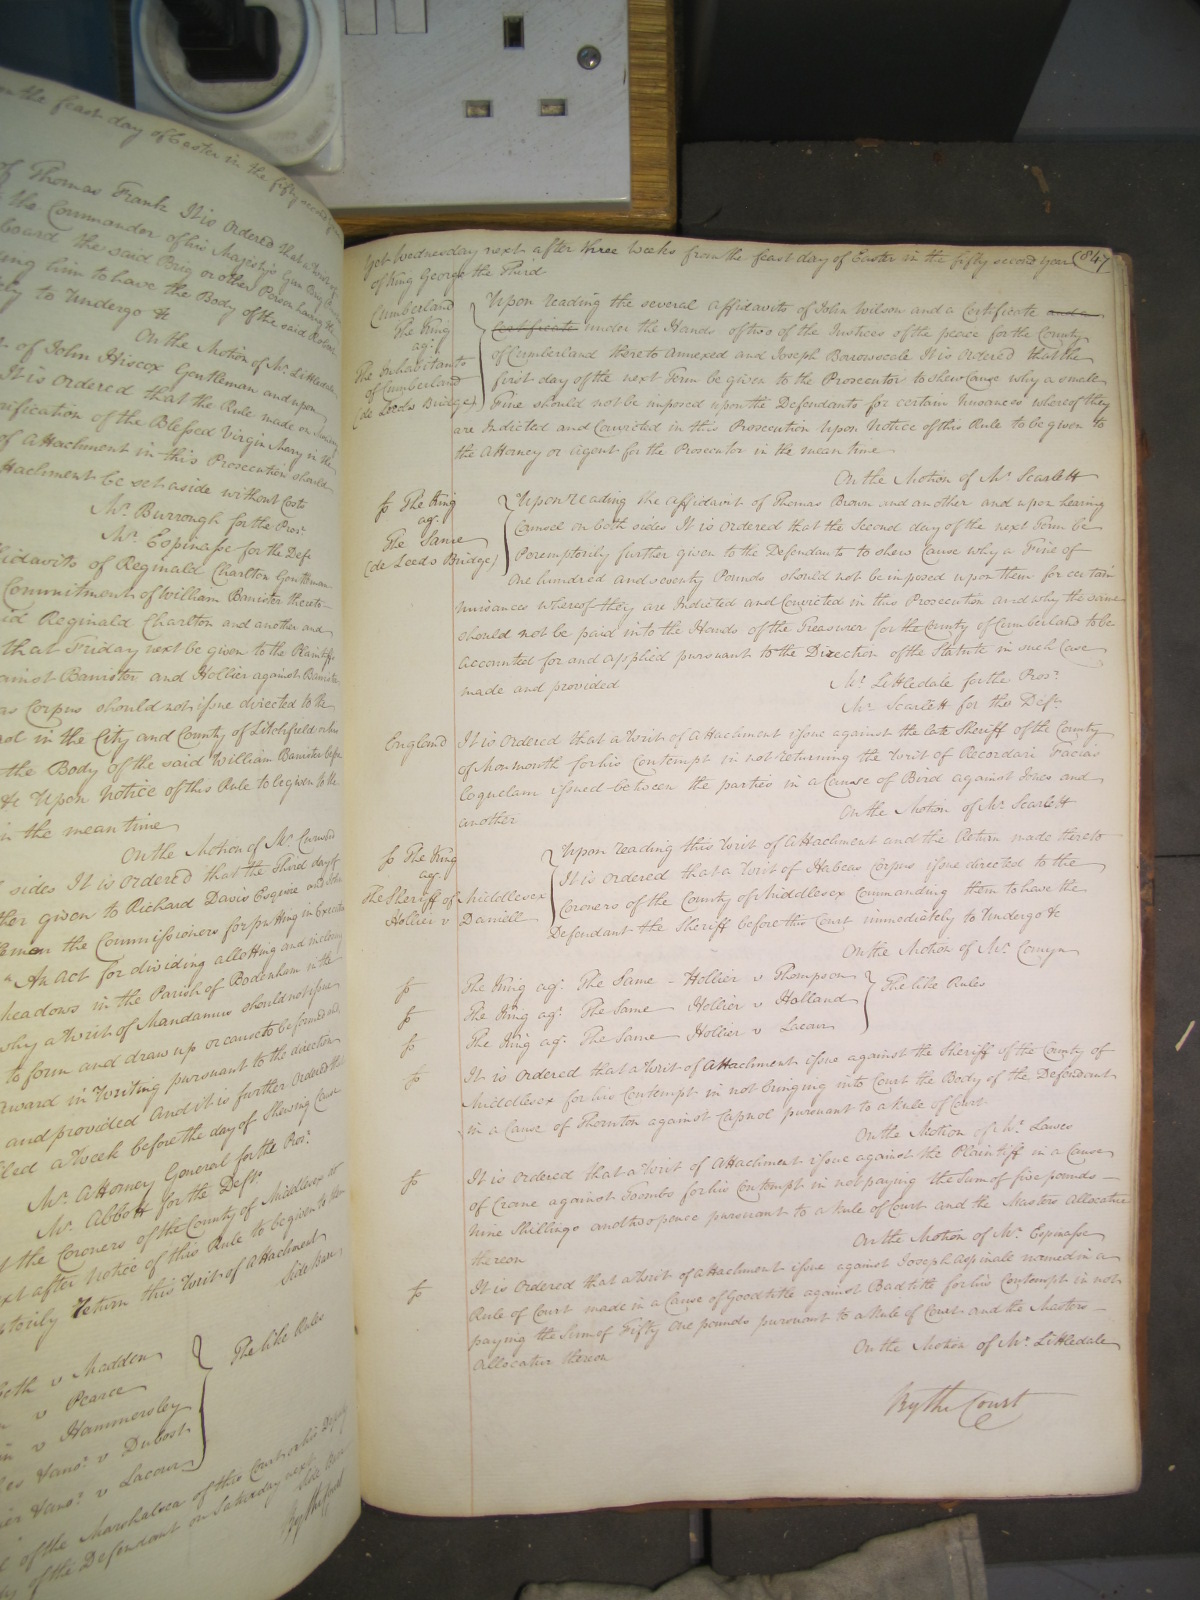 on the feast day of Easter in the fifty second year
of Thomas Frank It is Ordered that a Writ of
the Commander of his Majesty's Gun Brig
board the said Brig or other Person having the
him to have the Body of the said Robert
to Undergo &c
On the Motion of Mr. Littledale
of John Hiscox Gentleman and upon
It is ordered that the Rule made on
Purification of the Blessed Virgin Mary in the
of attachment in this Prosecution should
attachment be set aside without Costs
Mr. Burrough for the Prosr.
Mr. Espinasse for the Deft.
affidavits of Reginald Charlton Gentleman
Commitment of William Banister thereto
Reginald Charlton and another and
that Friday next be given to the Plaintiffs
against Banister and Hollier against Banister
Corpus should not issue directed to the
in the City and County of Litchfield
the Body of the said William Banister before
&c Upon Notice of this Rule to be given to the
in the mean time
On the Motion of Mr. Curwood
sides It is Ordered that the Third day of
given to Richard Davis Esquire and John
the Commissioners for putting in Execution
"An Act for dividing allotting and inclosing
meadows in the Parish of Bodenham in the
why a Writ of Mandamus should not issue
to form and draw up or cause to be formed and
award in Writing pursuant to the direction
and provided And it is further Ordered that
a Week before the day of Shewing Cause
Mr. Attorney General for the Prosr.
Mr. Abbott for the Deft.
the Coroners of the County of Middlesex
next after Notice of this Rule to be given to
return this Writ of Attachment
Side Bar
v Madden
v Pearce
v Hammersley
v Dubost
v Lacour
The like Rules
of the Marshalsea of this Court or his Deputy
of the Defendant on Saturday next
Side Bar
By the Court
Yet Wednesday next after three Weeks from the feast day of Easter in the fifty second year 847
of King George the Third
Cumberland
The King
agt.
The Inhabitants
of Cumberland
(de Leeds Bridge)
Upon reading the several affidavits of John Wilson and a Certificate and a
Certificate under the Hands of two of the Justices of the peace for the County
of Cumberland thereto annexed and Joseph Borrowscale It is Ordered that the
first day of the next Term be given to the Prosecutor to shew Cause why a small
Fine should not be imposed upon the Defendants for certain Nusances whereof they
are Indicted and Convicted in this Prosecution Upon Notice of this Rule to be given to
the Attorney or Agent for the Prosecutor in the mean time
On the Motion of Mr. Scarlett
So The King
agt.
The Same
(de Leeds Bridge)
Upon reading the affidavit of Thomas Brown and another and upon hearing
Counsel on both sides It is ordered that the Second day of the next Term be
Peremptorily further given to the Defendants to shew Cause why a Fine of
One hundred and seventy Pounds should not be imposed upon them for certain
nuisances whereof they are Indicted and Convicted in this Prosecution and why the same
should not be paid into the Hands of the Treasurer for the County of Cumberland to be
accounted for and applied pursuant to the Direction of the Statute in such Case
made and provided
Mr. Littledale for the Prosr.
Mr. Scarlett for the Deft.
England
It is Ordered that a Writ of Attachment issue against the late Sheriff of the County
of Monmouth for his Contempt in not returning the Writ of Recordari Facias
Loquelam issued between the parties in a Cause of Bird against Isaac and
another
On the Motion of Mr. Scarlett
So The King
agt.
The Sheriff of Middlesex
Hollier v Daniell
Upon reading this Writ of Attachment and the Return made thereto
It is ordered that a Writ of Habeas Corpus issue directed to the
Coroners of the County of Middlesex Commanding them to have the
Defendant the Sheriff before this Court immediately to Undergo &c
On the Motion of Mr. Comyn
So The King agt. The Same - Hollier v Thompson
So The King agt. The Same Hollier v Holland
So The King agt. The Same Hollier v Lacour
The like Rules
So It is Ordered that a Writ of Attachment issue against the Sheriff of the County of
Middlesex for his Contempt in not bringing into Court the Body of the Defendant
in a Cause of Thornton against Capnol pursuant to a Rule of Court
On the Motion of Mr. Lawes
So It is Ordered that a Writ of Attachment issue against the Plaintiff in a Cause
of Crane against Toombs for his Contempt in not paying the Sum of five pounds
Nine Shillings and two pence pursuant to a Rule of Court and the Masters Allocatur
thereon
On the Motion of Mr. Espinasse
So It is Ordered that a Writ of Attachment issue against Joseph Aspinale named in a
Rule of Court made in a Cause of Goodtitle against Badtitle for his Contempt in not
paying the Sum of Fifty One pounds pursuant to a Rule of Court and the Masters
Allocatur thereon
On the Motion of Mr. Littledale
By the Court